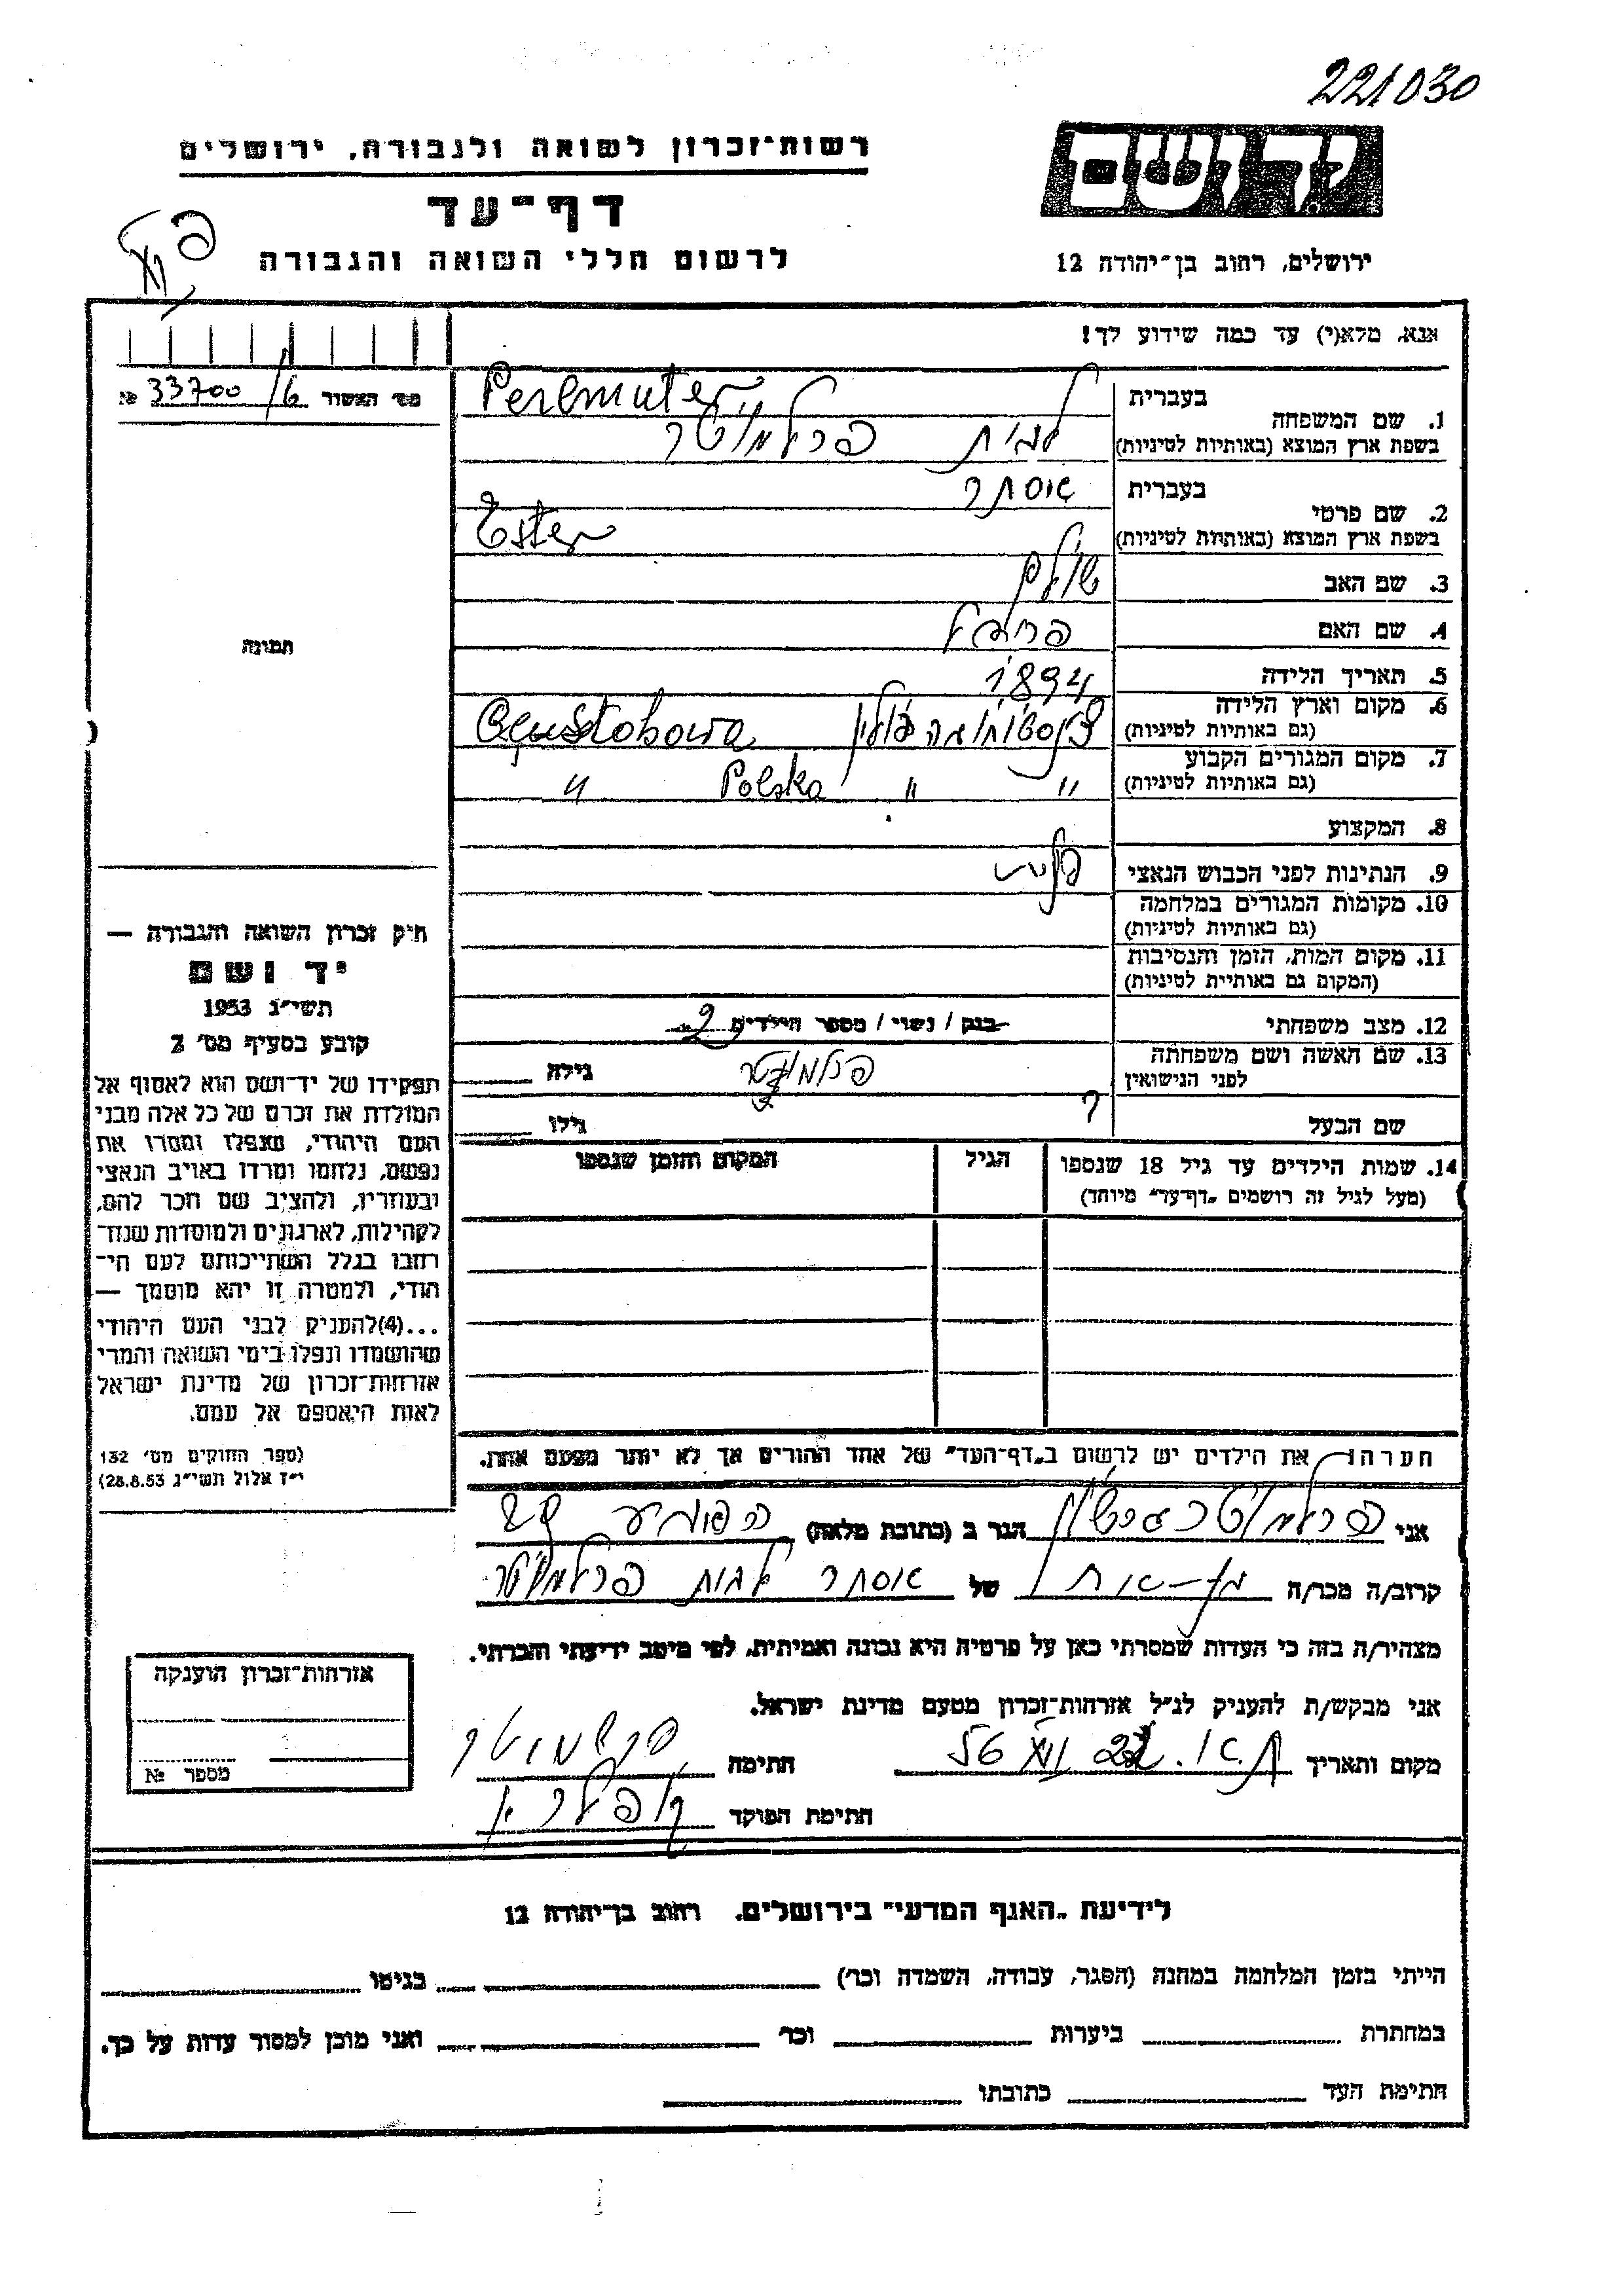 221030
רשות־זכרון לשואה ולגבורה, ירושלים
דף־עד
לרשום חללי השואה והגבורה
יד ושם
ירושלים, רחוב בן־יהודה 12
אנא, מלא(י) עד כמה שידוע לך!
מס׳ האשור 33700/6 №
1. שם המשפחה
בעברית
בשפת ארץ המוצא (באותיות לטיניות)
Perlmuter
לבית פרלמוטר
2. שם פרטי
בעברית אסתר
בשפת ארץ המוצא (באותיות לטיניות) Ester
3. שם האב
4. שם האם
5. תאריך הלידה 1894
6. מקום וארץ הלידה
(גם באותיות לטיניות)
צ'נסטוחובה פולין Częstohowa
7. מקום המגורים הקבוע
(גם באותיות לטיניות)
" " Polska "
8. המקצוע
9. הנתינות לפני הכבוש הנאצי
10. מקומות המגורים במלחמה
(גם באותיות לטיניות)
11. מקום המות, הזמן והנסיבות
(המקום גם באותיות לטיניות)
12. מצב משפחתי רווק / נשוי / מספר הילדים 2
13. שם האשה ושם משפחתה
לפני הנישואין
פרלמוטר גילה
שם הבעל ? גילו
14. שמות הילדים עד גיל 18 שנספו
(מעל לגיל זה רושמים „דף־עד״ מיוחד)
הגיל
המקום והזמן שנספו
הערה: את הילדים יש לרשום ב„דף־העד״ של אחד ההורים אך לא יותר מפעם אחת.
תמונה
חוק זכרון השואה והגבורה —
יד ושם
תשי״ג 1953
קובע בסעיף מס׳ 2
תפקידו של יד־ושם הוא לאסוף אל
המולדת את זכרם של כל אלה מבני
העם היהודי, שנפלו ומסרו את
נפשם, נלחמו ומרדו באויב הנאצי
ובעוזריו, ולהציב שם וזכר להם,
לקהילות, לארגונים ולמוסדות שנח־
רבו בגלל השתייכותם לעם הי־
הודי, ולמטרה זו יהא מוסמך —
...(4)להעניק לבני העם היהודי
שהושמדו ונפלו בימי השואה והמרי
אזרחות־זכרון של מדינת ישראל
לאות היאספם אל עמם.
(ספר החוקים מס׳ 132
י״ז אלול תשי״ג 28.8.53)
אני פרלמוטר גרשון הגר ב (כתובת מלאה)
קרוב/ה מכר/ה בן-אחות של אסתר לבית פרלמוטר
מצהיר/ה בזה כי העדות שמסרתי כאן על פרטיה היא נכונה ואמיתית, לפי מיטב ידיעתי והכרתי.
אני מבקש/ת להעניק לנ״ל אזרחות־זכרון מטעם מדינת ישראל.
מקום ותאריך ת.א. חתימה פרלמוטר
חתימת הפוקד
אזרחות־זכרון הוענקה
מספר №
לידיעת „האגף המדעי״ בירושלים. רחוב בן־יהודה 12
הייתי בזמן המלחמה במחנה (הסגר, עבודה, השמדה וכו׳) בגיטו
במחתרת ביערות וכו׳ ואני מוכן למסור עדות על כך.
חתימת העד כתובתו